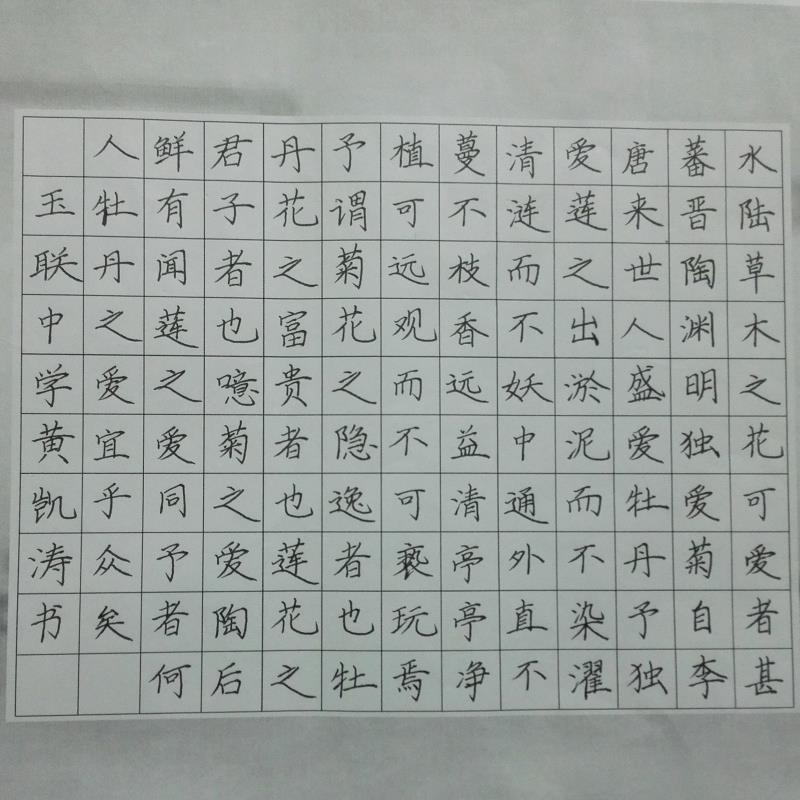 水陆草木之花可爱者甚
蕃晋陶渊明独爱菊自李
唐来世人盛爱牡丹予独
爱莲之出淤泥而不染濯
清涟而不妖中通外直不
蔓不枝香远益清亭亭净
植可远观而不可亵玩焉
予谓菊花之隐逸者也牡
丹花之富贵者也莲花之
君子者也噫菊之爱陶后
鲜有闻莲之爱同予者何
人牡丹之爱宜乎众矣
玉联中学黄凯涛书